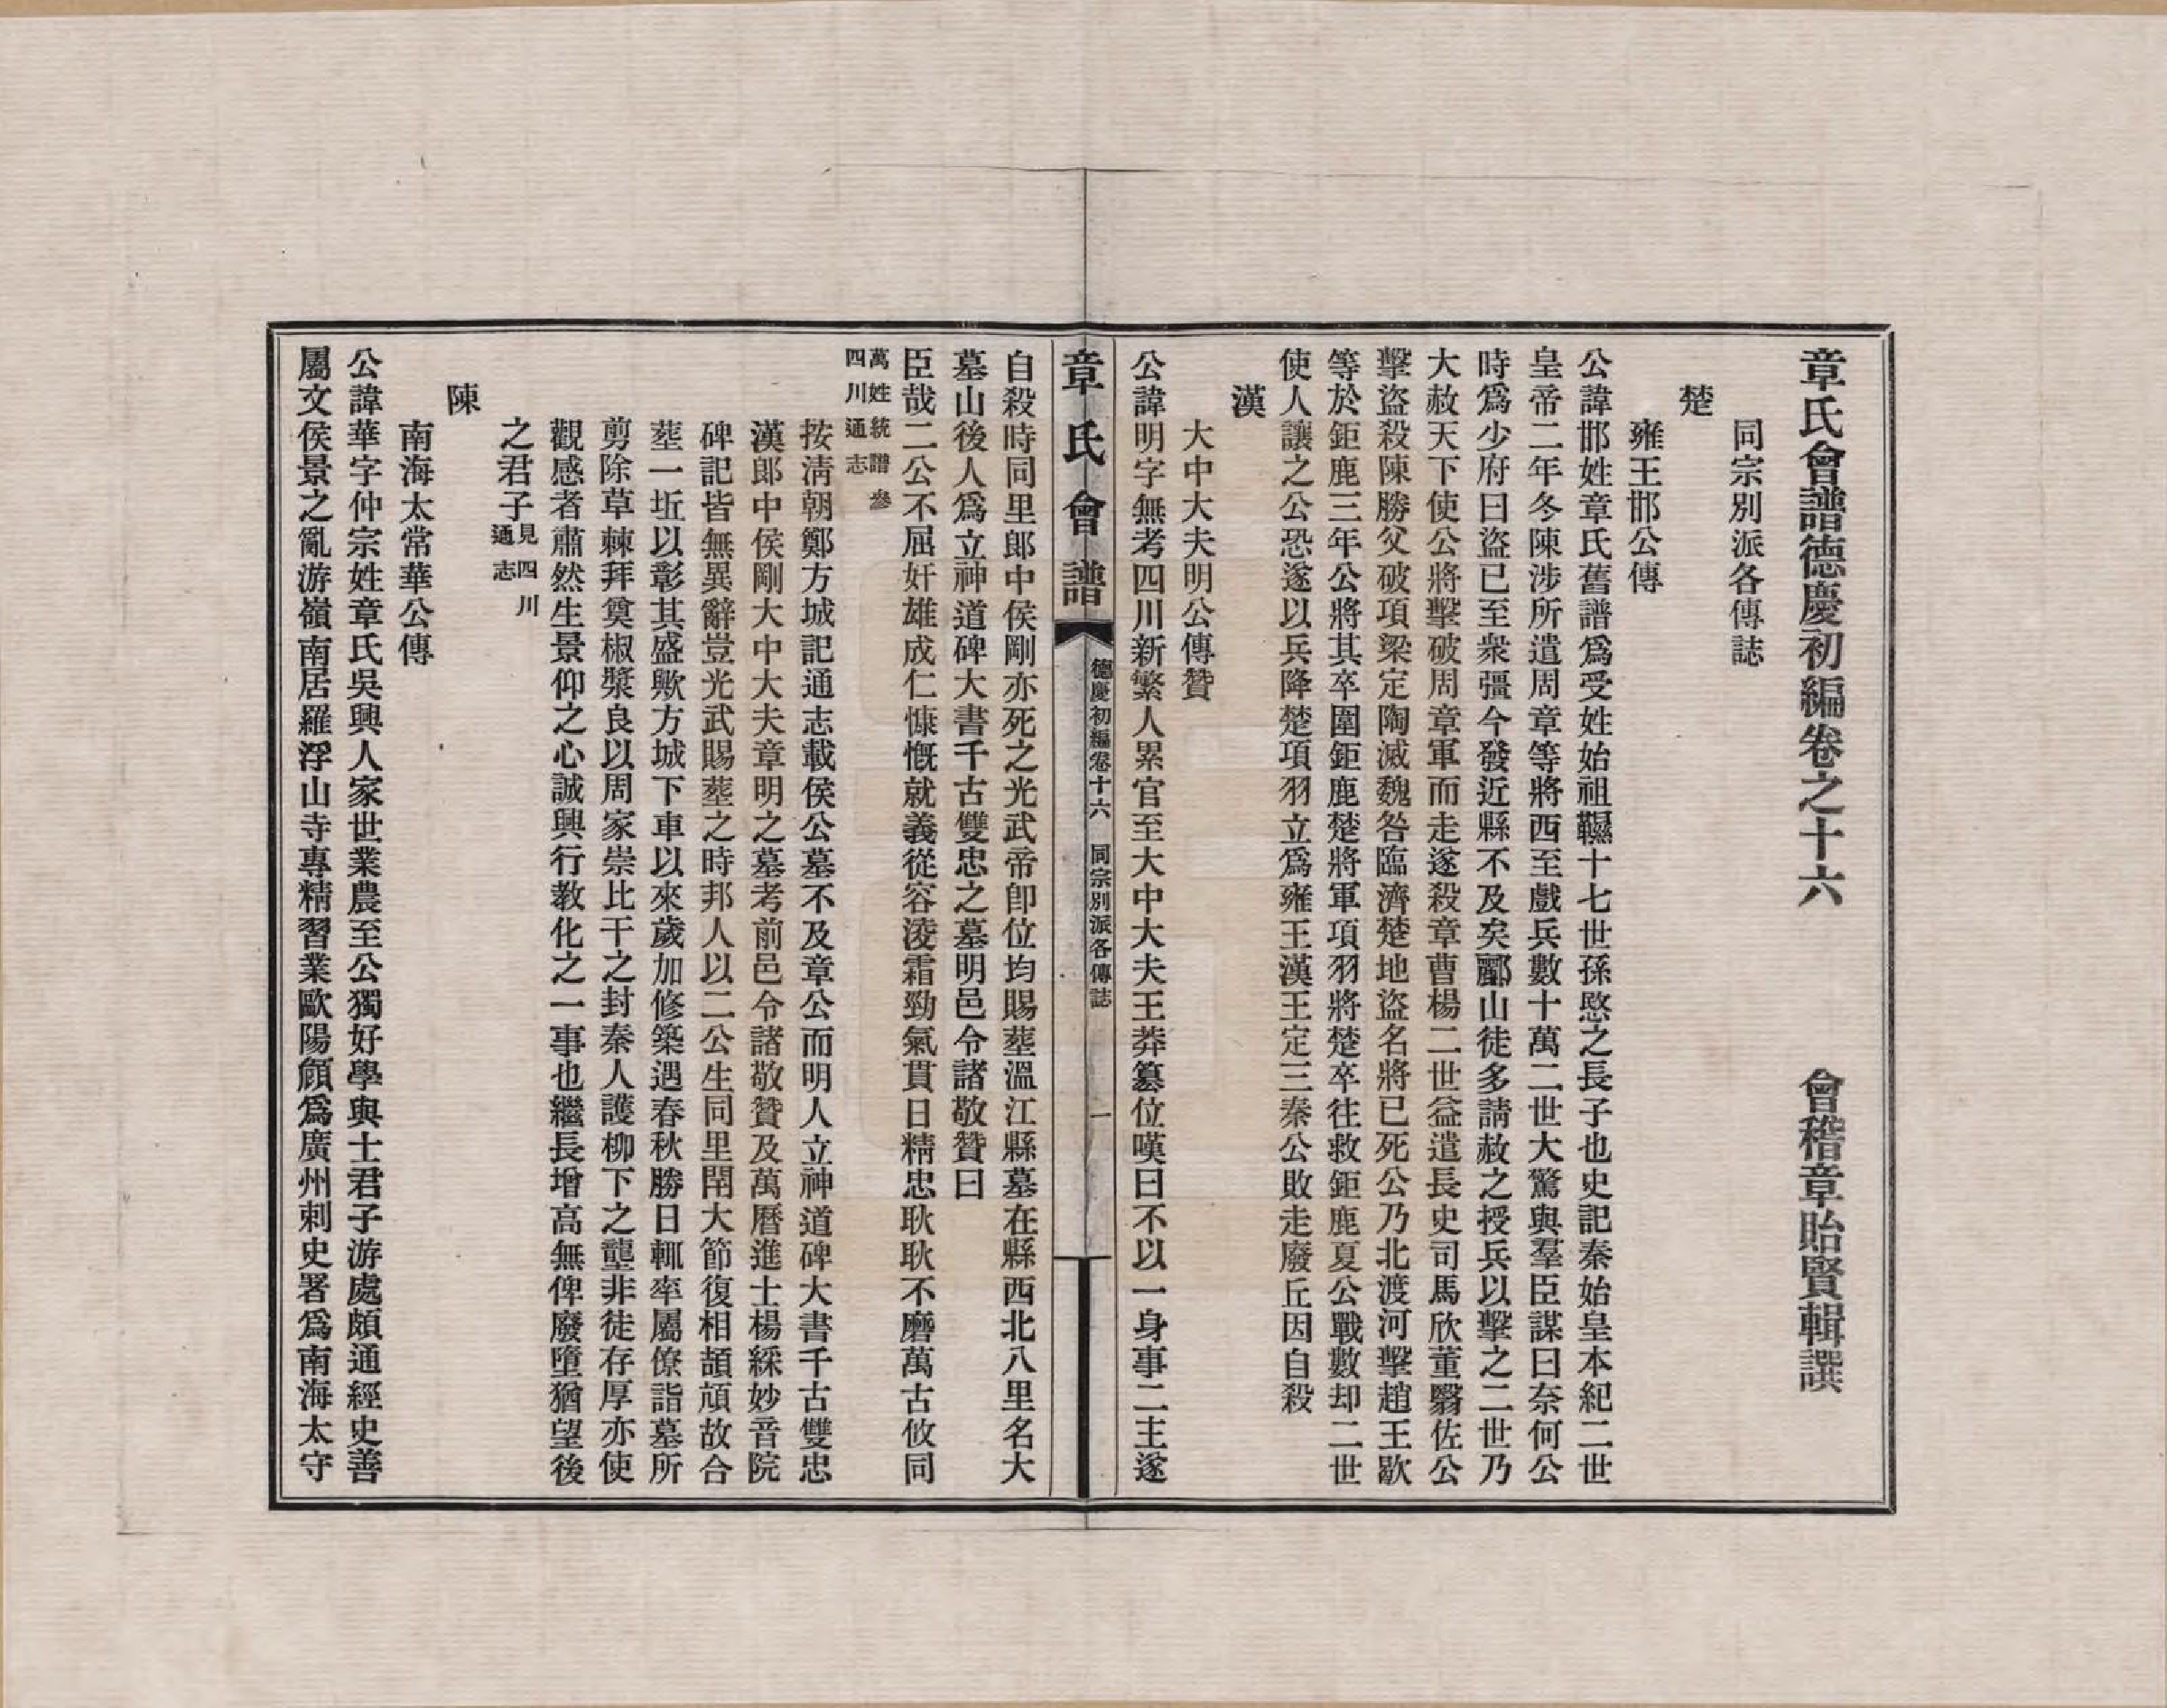 章氏會譜德慶初編卷之十六　會稽章貽賢輯譔
同宗別派各傳誌
楚
雍王邯公傳
公諱邯姓章氏舊譜爲受姓始祖韅十七世孫愍之長子也史記秦始皇本紀二世
皇帝二年冬陳涉所遣周章等將西至戲兵數十萬二世大驚與羣臣謀曰奈何公
時爲少府曰盜已至衆彊今發近縣不及矣酈山徒多請赦之授兵以擊之二世乃
大赦天下使公將擊破周章軍而走遂殺章曹楊二世益遣長史司馬欣董翳佐公
擊盜殺陳勝父破項梁定陶滅魏咎臨濟楚地盜名將已死公乃北渡河擊趙王歇
等於鉅鹿三年公將其卒圍鉅鹿楚將軍項羽將楚卒往救鉅鹿夏公戰數却二世
使人讓之公恐遂以兵降楚項羽立爲雍王漢王定三秦公敗走廢丘因自殺
漢
大中大夫明公傳贊
公諱明字無考四川新繁人累官至大中大夫王莽簒位嘆曰不以一身事二主遂
章氏會譜　德慶初編卷十六　同宗別派各傳誌　一
自殺時同里郎中侯剛亦死之光武帝卽位均賜葬溫江縣墓在縣西北八里名大
墓山後人爲立神道碑大書千古雙忠之墓明邑令諸敬贊曰
臣哉二公不屈奸雄成仁慷慨就義從容淩霜勁氣貫日精忠耿耿不磨萬古攸同
萬姓統譜參
四川通志
按淸朝鄭方城記通志載侯公墓不及章公而明人立神道碑大書千古雙忠
漢郎中侯剛大中大夫章明之墓考前邑令諸敬贊及萬曆進士楊綵妙音院
碑記皆無異辭豈光武賜葬之時邦人以二公生同里閈大節復相頡頏故合
葬一坵以彰其盛歟方城下車以來歲加修築遇春秋勝日輒率屬僚詣墓所
剪除草棘拜奠椒漿良以周家崇比干之封秦人護柳下之壟非徒存厚亦使
觀感者肅然生景仰之心誠興行教化之一事也繼長增高無俾廢墮猶望後
之君子見四川
通志
陳
南海太常華公傳
公諱華字仲宗姓章氏吳興人家世業農至公獨好學與士君子游處頗通經史善
屬文侯景之亂游嶺南居羅浮山寺專精習業歐陽頠爲廣州刺史署爲南海太守